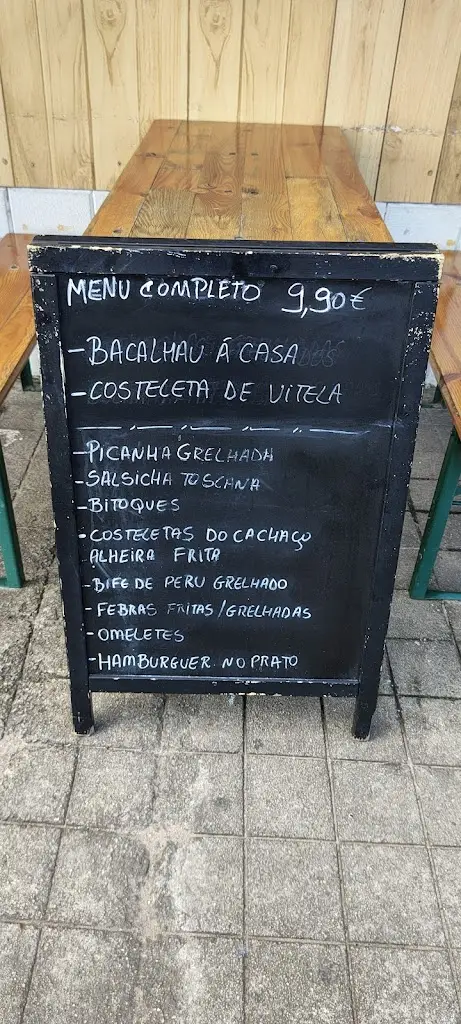 MENU COMPLETO 9,90€
- BACALHAU Á CASA
- COSTELETA DE VITELA
- PICANHA GRELHADA
- SALSICHA TOSCANA
- BITOQUES
- COSTELETAS DO CACHAÇO
ALHEIRA FRITA
- BIFE DE PERU GRELHADO
- FEBRAS FRITAS / GRELHADAS
- OMELETES
- HAMBURGUER NO PRATO